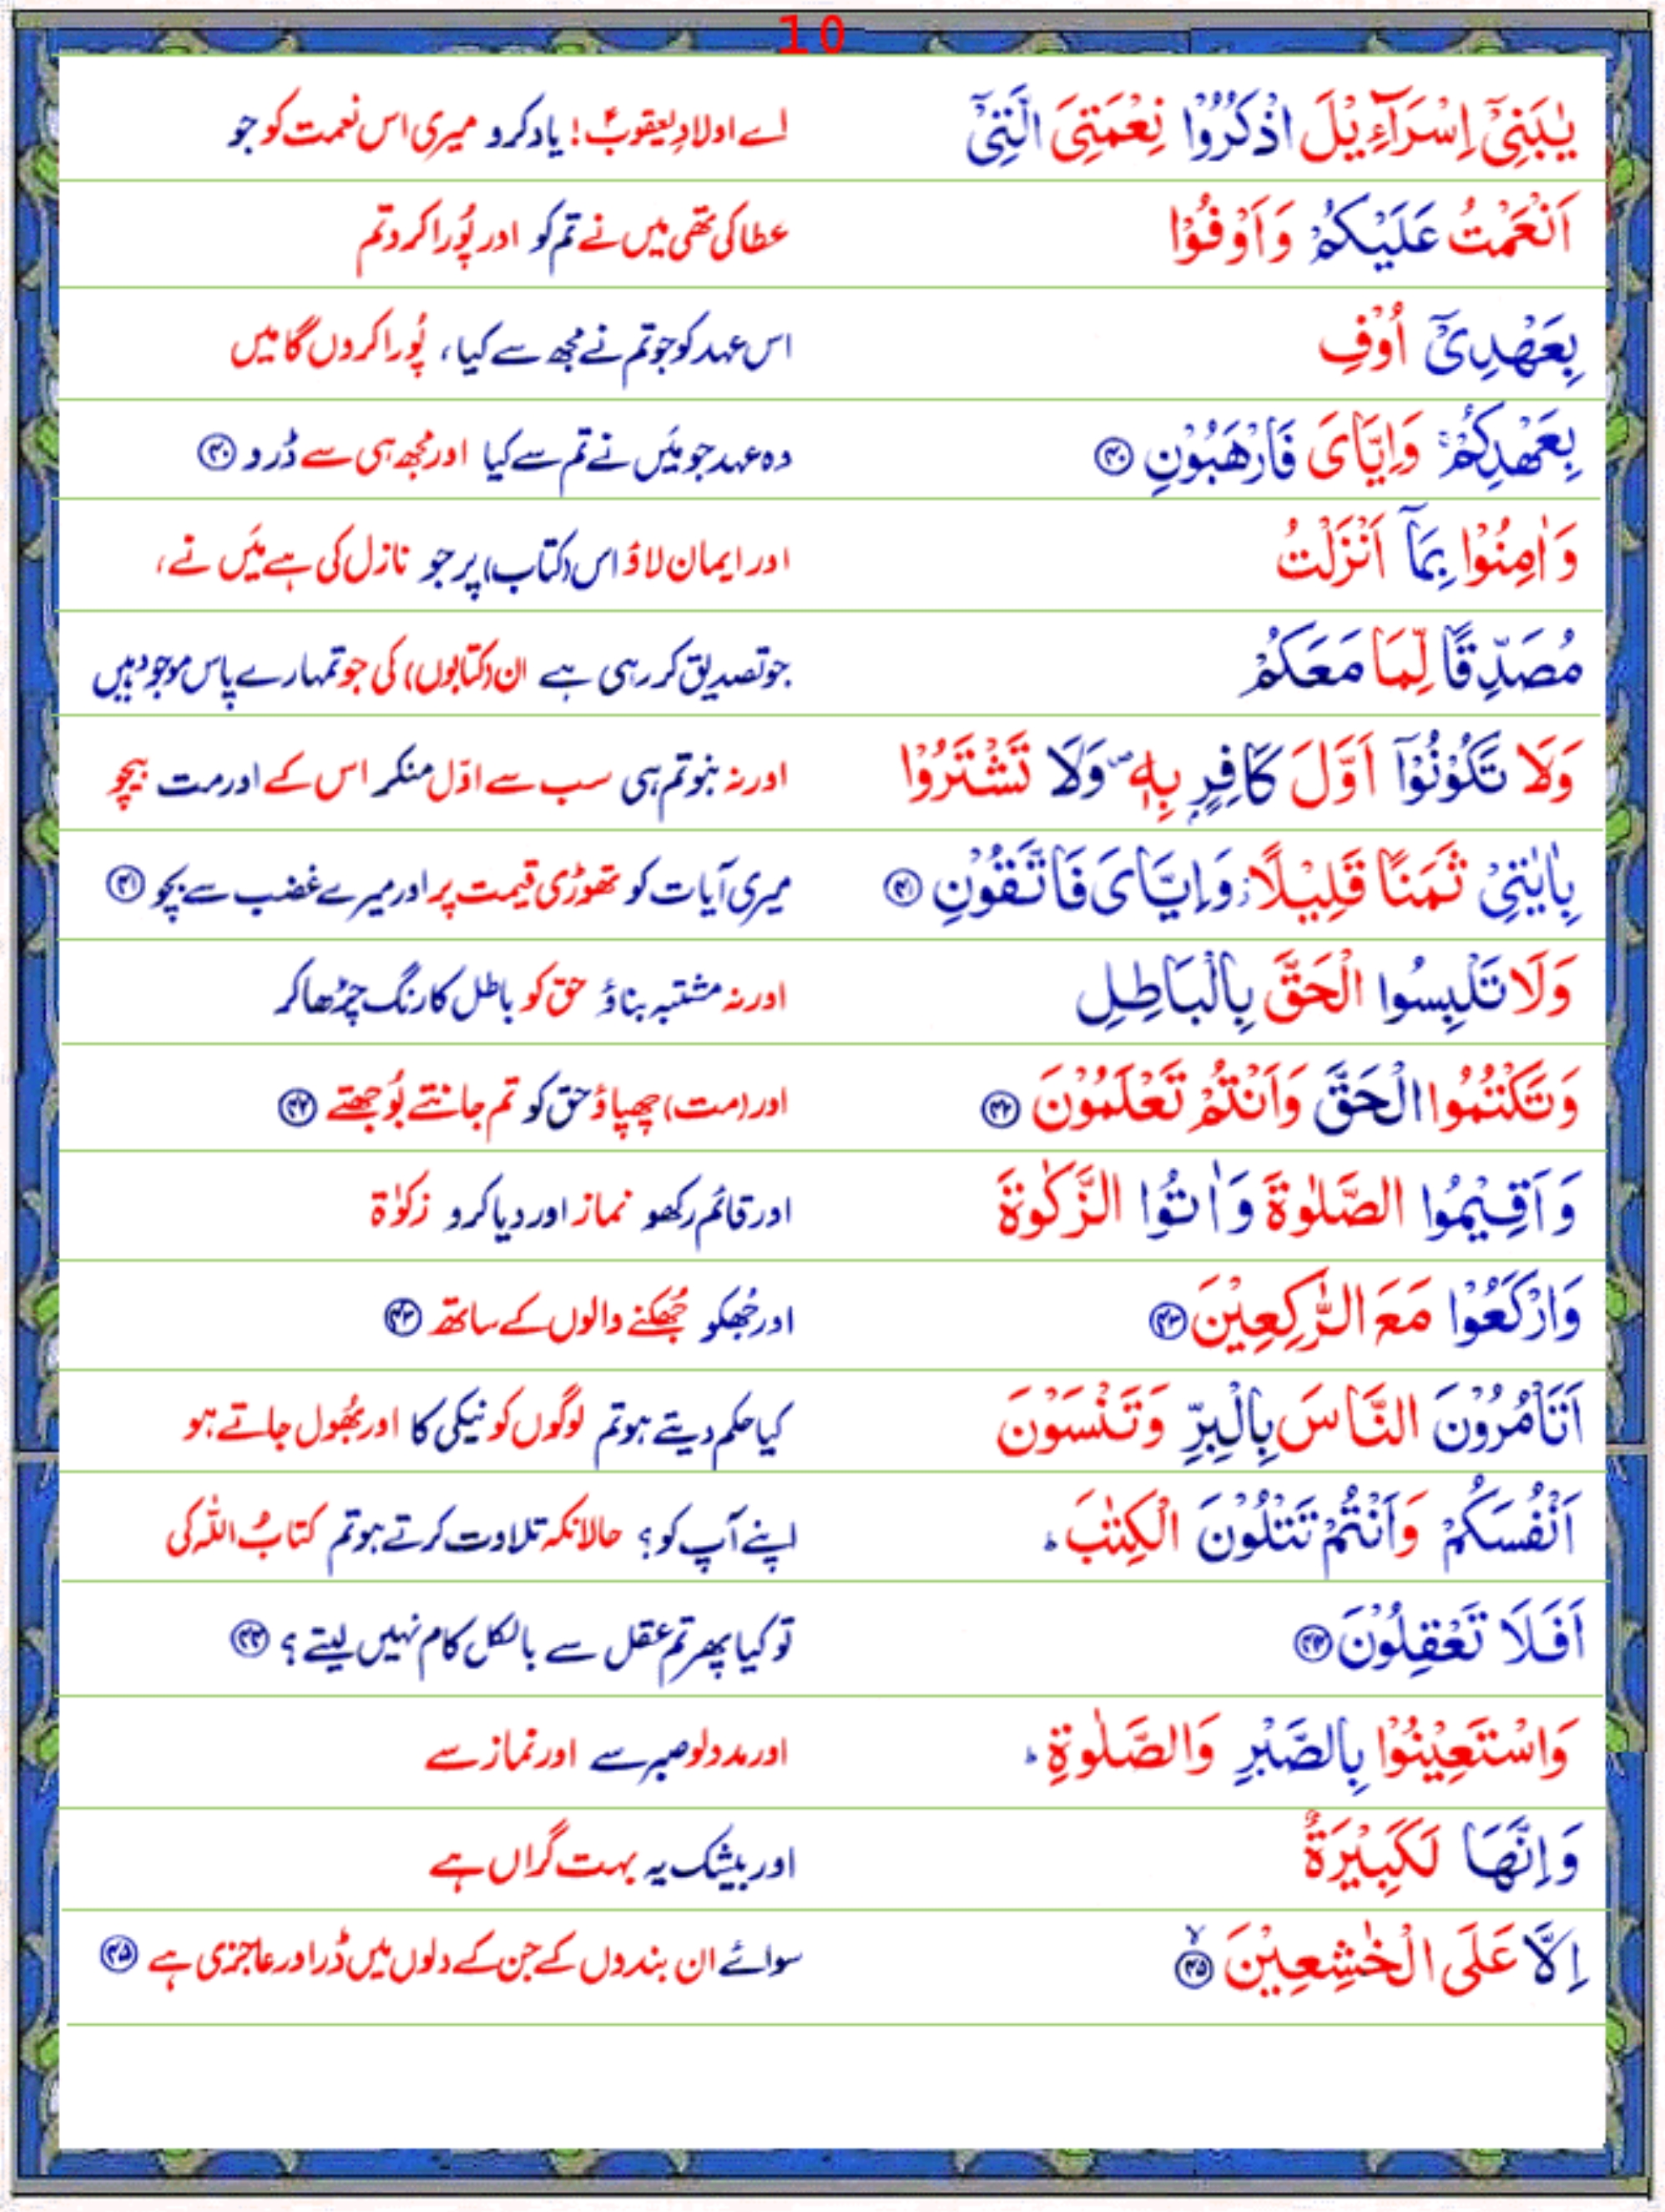 10
يٰبَنِىْٓ اِسْرَآءِيْلَ اذْكُرُوْا نِعْمَتِىَ الَّتِىْٓ اے اولادِ یعقوبؑ! یاد کرو میری اس نعمت کو جو
اَنْعَمْتُ عَلَيْكُمْ وَاَوْفُوْا عطا کی تھی میں نے تم کو اور پُورا کرو تم
بِعَهْدِىْٓ اُوْفِ اس عہد کو جو تم نے مجھ سے کیا، پُورا کروں گا میں
بِعَهْدِكُمْۚ وَاِيَّاىَ فَارْهَبُوْنِ ۝۴۰ وہ عہد جو میَں نے تم سے کیا اور مجھ ہی سے ڈرو ۝۴۰
وَاٰمِنُوْا بِمَآ اَنْزَلْتُ اور ایمان لاؤ اس (کتاب) پر جو نازل کی ہے میَں نے،
مُصَدِّقًا لِّمَا مَعَكُمْ جو تصدیق کر رہی ہے ان (کتابوں) کی جو تمہارے پاس موجود ہیں
وَلَا تَكُوْنُوْٓا اَوَّلَ كَافِرٍۢ بِهٖ ۖ وَلَا تَشْتَرُوْا اور نہ بنو تم ہی سب سے اوّل منکر اس کے اور مت بیچو
بِاٰيٰتِىْ ثَمَنًا قَلِيْلًا ز وَاِيَّاىَ فَاتَّقُوْنِ ۝۴۱ میری آیات کو تھوڑی قیمت پر اور میرے غضب سے بچو ۝۴۱
وَلَا تَلْبِسُوا الْحَقَّ بِالْبَاطِلِ اور نہ مشتبہ بناؤ حق کو باطل کا رنگ چڑھا کر
وَتَكْتُمُوا الْحَقَّ وَاَنْتُمْ تَعْلَمُوْنَ ۝۴۲ اور (مت) چھپاؤ حق کو تم جانتے بُوجھتے ۝۴۲
وَاَقِيْمُوا الصَّلٰوةَ وَاٰتُوا الزَّكٰوةَ اور قائم رکھو نماز اور دیا کرو زکوٰۃ
وَارْكَعُوْا مَعَ الرّٰكِعِيْنَ ۝۴۳ اور جُھکو جُھکنے والوں کے ساتھ ۝۴۳
اَتَاْمُرُوْنَ النَّاسَ بِالْبِرِّ وَتَنْسَوْنَ کیا حکم دیتے ہو تم لوگوں کو نیکی کا اور بھُول جاتے ہو
اَنْفُسَكُمْ وَاَنْتُمْ تَتْلُوْنَ الْكِتٰبَ ؕ اپنے آپ کو؟ حالانکہ تلاوت کرتے ہو تم کتابُ اللہ کی
اَفَلَا تَعْقِلُوْنَ ۝۴۴ تو کیا پھر تم عقل سے بالکل کام نہیں لیتے؟ ۝۴۴
وَاسْتَعِيْنُوْا بِالصَّبْرِ وَالصَّلٰوةِ ؕ اور مدد لو صبر سے اور نماز سے
وَاِنَّهَا لَكَبِيْرَةٌ اور بیشک یہ بہت گراں ہے
اِلَّا عَلَى الْخٰشِعِيْنَ ۝۴۵ۙ سوائے ان بندوں کے جن کے دلوں میں ڈر اور عاجزی ہے ۝۴۵